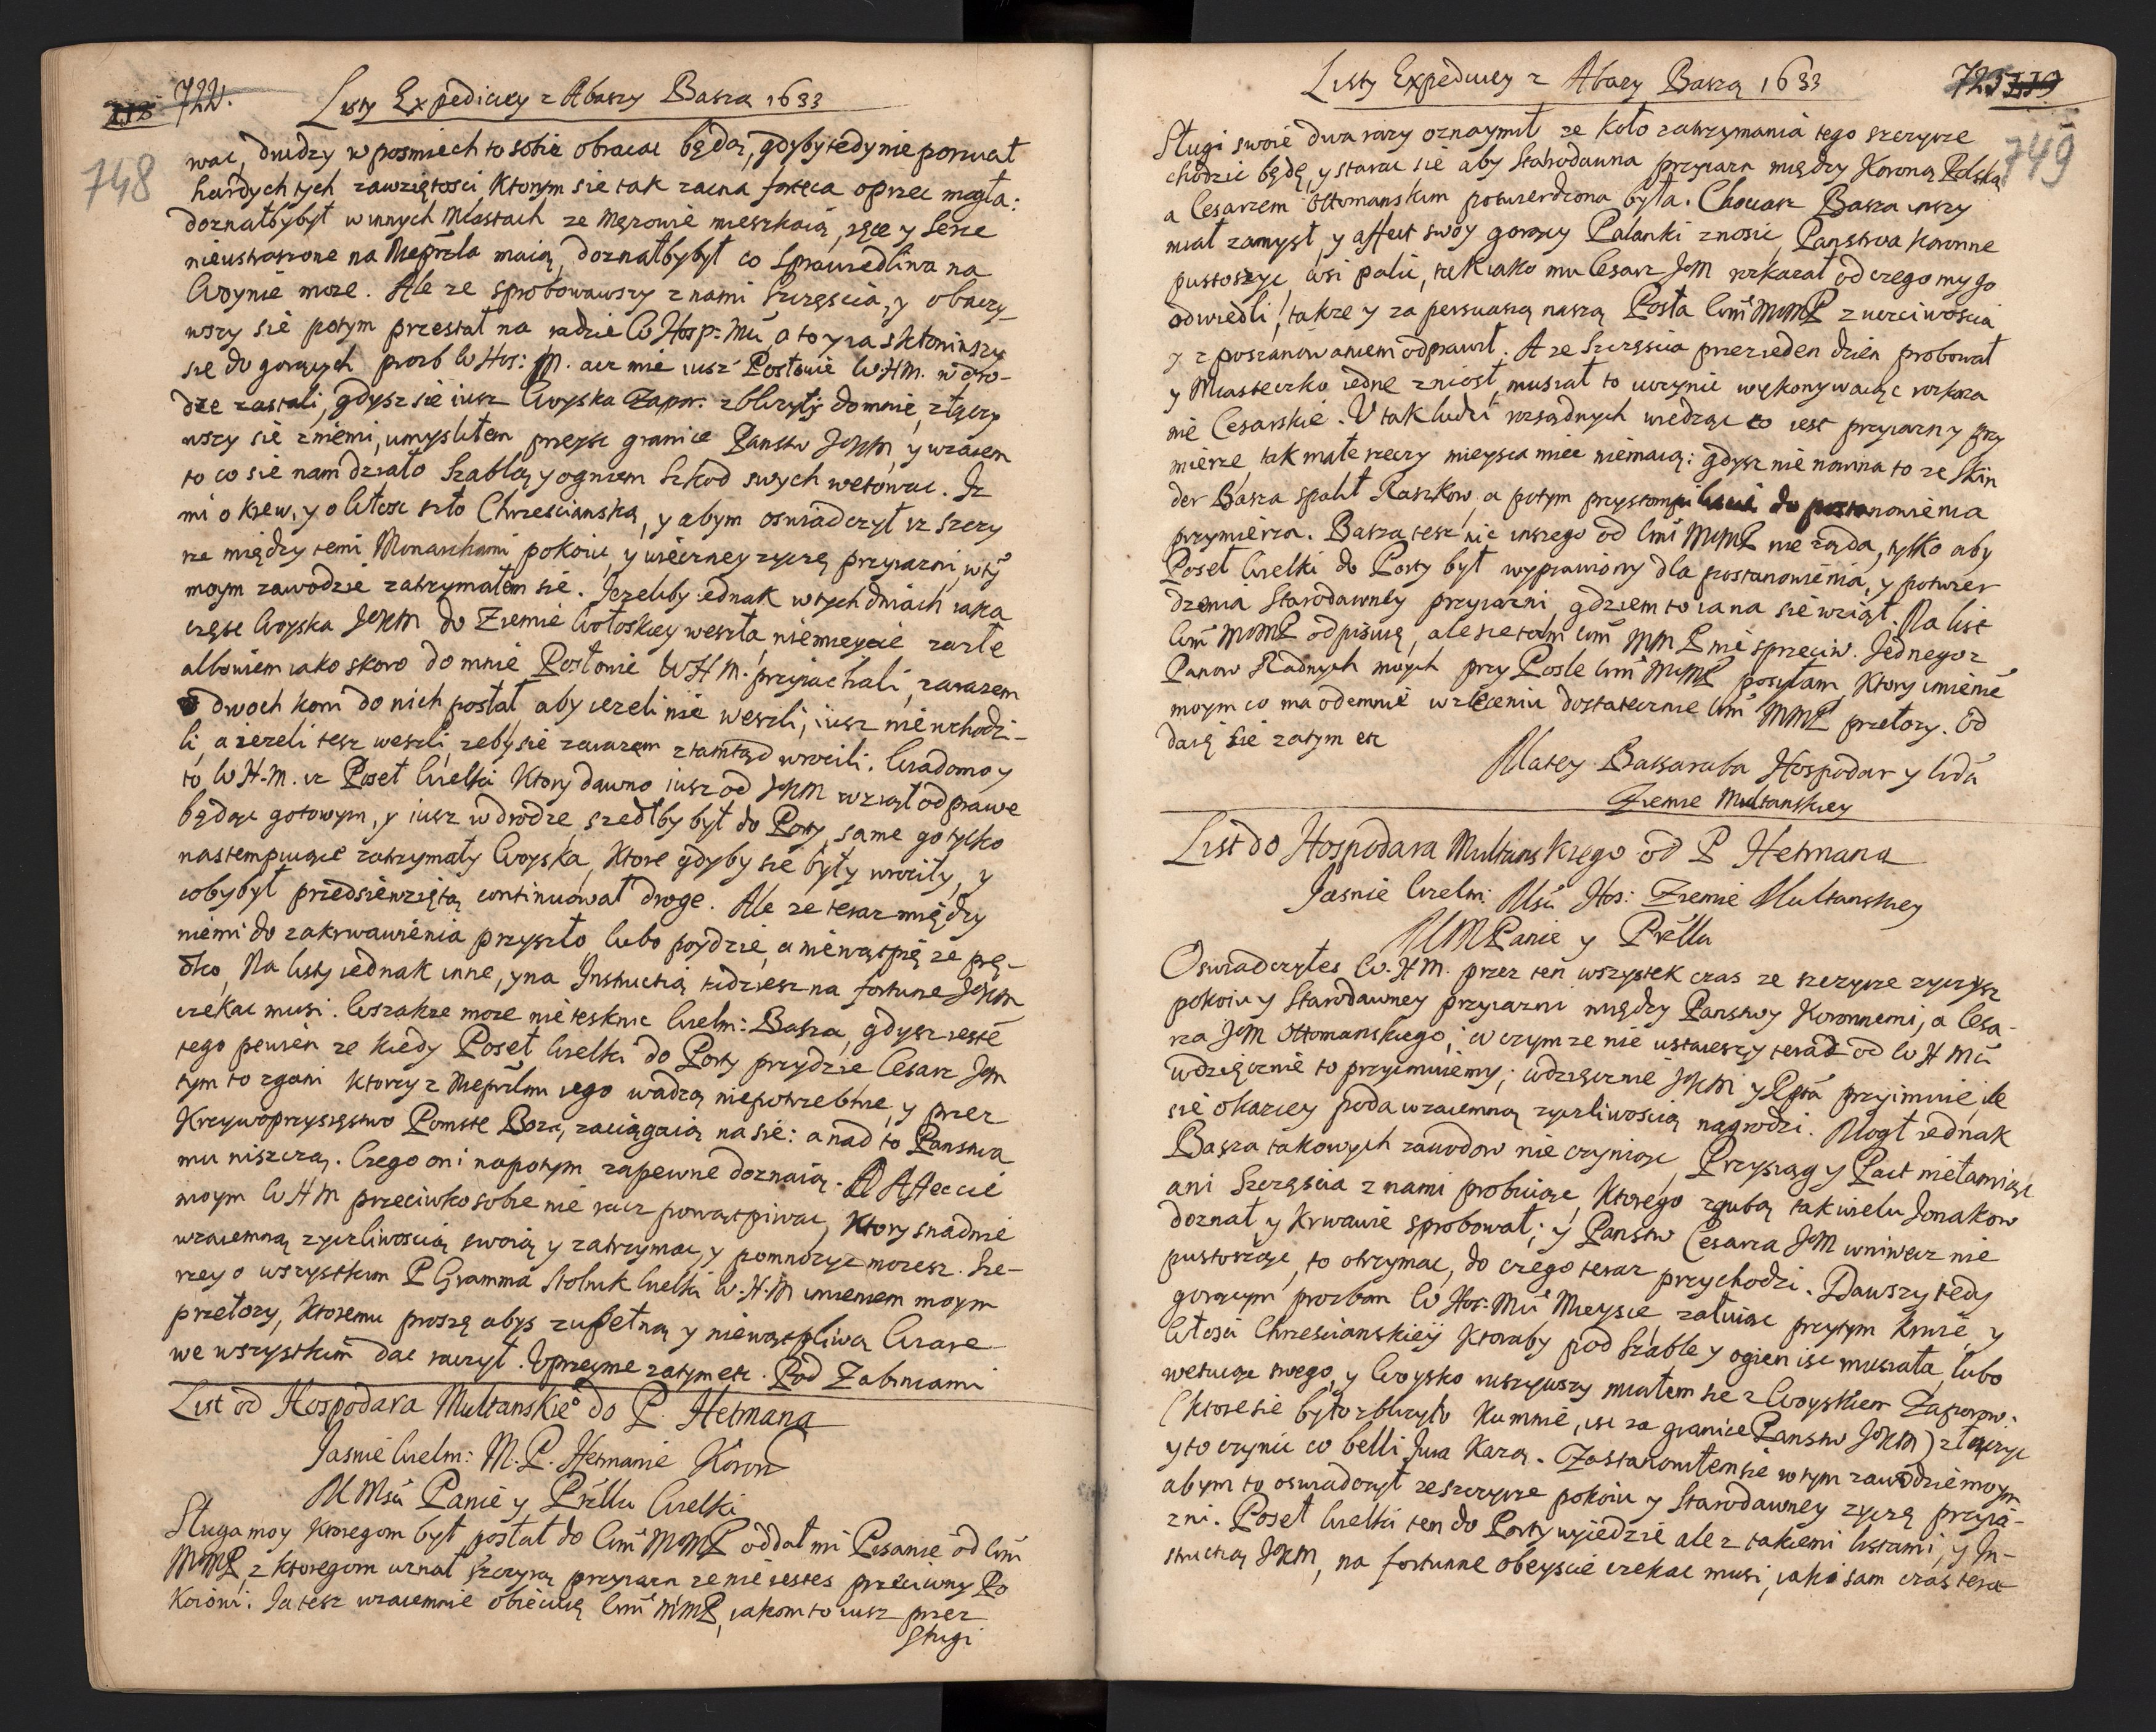 718 722.
Listy Expediciey z Abaszy Basza 1633
748
wac, drudzy w posmiech to sobie obracac będą, gdyby tedy nie porwał
hardych tych zawziętosci, Ktorym sie tak zacna forteca oprzec mogła:
doznałby był w innych Miastach ze Męzowie mieszkaią, ręce y Serce
nieustraszone na Nieprzla maią, doznałby był co Sprawiedliwa na
Woynie moze. Ale ze sprobowawszy z nami Szczęscia, y obaczy-
wszy sie potym przestał na radzie W Hosp: Mci, a to y ia skłoniwszy
sie do gorących prozb W Hos: M. acz mie iusz Posłowie W.H.M. w dro-
dze zastali, gdysz sie iusz Woyska Zapor. zblizyły do mnie, złączy
wszy sie z niemi, umysliłem przeysc granice Panstw JKM, y wzaiem
to co sie nam działo Szablą y ogniem Szkod swych wetowac. Iz
mi o krew, y o litosc szło Chrzescianską, y abym oswiadczył iz szczy
rze między temi Monarchami pokoiu, y wiecznej zyczę przyiazni, w ty
moym zawodzie zatrzymałem sie. Jezeliby iednak w tych dniach iaka
częsc Woyska JKM do Ziemie Wołoskiey weszła, niemieycie za złe
albowiem iako skoro do mnie Posłowie WHM. przyiachali, zarazem
o dwoch kom do nich posłał aby iezeli nie weszli, iusz nie wchodzi-
li, a iezeli tesz weszli, zeby sie zarazem ztamtąd wrocili. Wiadomo y
to W.H.M. iz Poseł Wielki Ktory dawno iusz od JKM wziął odprawe
będąc gotowym, y iusz w drodze, szedłby był do Porty, same go tylko
nastempuiące zatrzymały Woyska, Ktore gdyby sie były wrociły, y
on by był przedsięwziętą continuował droge. Ale ze teraz między
niemi do zakrwawienia przyszło, lubo poydzie, a nie wątpię ze prę-
dko, Na listy iednak inne, y na Instructią tudziesz na fortune JKM
czekac musi. Wszakze moze nie teskinc Wielm: Basza, gdysz iescie
tego pewien ze kiedy Poseł Wielki do Porty przydzie Cesarz Jm
tym to zgani Ktorzy z Nieprzlmi iego wadzą niepotrzebnie, y przez
Krzywoprzysięstwo Pomste Boza, zaciągaią na sie: a nad to Panstwa
mu niszczą. Czego oni napotym zapewne doznaią. O Affeccie
moym W H M przeciwko sobie nie racz powątpiwac, Ktory snadnie
wzaiemną zyczliwoscią swoią y zatrzymac, y pomnozyc mozesz. Sze-
rzey o wszystkim P Gramma Stolnik Wielki W.H.M imieniem moym
przełozy, Ktoremu proszę abys zupełną y niewątpliwą Wiare
we wszystkim dac raczył. Uprzeyme zatym etc. Pod Zabincami
List od Hospodara Multanskie° do P. Hetmana
Jasnie Wielm: M.P. Hetmanie Koron
M Msci Panie y Przllu Wielki
Sługa moy Ktoregom był posłał do Wm MMP oddał mi Pisanie od Wm
MMP, z Ktoregom uznał szczyrą przyiazn ze nie iestes przeciwny Po
Koiowi. Ia tesz wzaiemnie obiecuię Wm MMP, iakom to iusz przez
Sługi
Listy Expediciey z Abazy Baszą 1633
723 719
749
Sługi swoie dwa razy oznaymił ze Koło zatrzymania tego szczyrze
chodzic będę, y starac sie aby Starodawna przyiazn między Koroną Polską
a Cesarzem Ottomanskim potwierdzona była. Chociasz Basza inszy
miał zamysł, y affect swoy gorący Palanki znosic, Panstwa Koronne
pustoszyc, wsi palic, tak iako mu Cesarz JeM rozkazał od czego my go
odwiedli, takze y za perswasią naszą Posła Wm MMP z uczciwoscią
y z poszanowaniem odprawił. A ze Szczęscia przez ieden dzien probował
y Miasteczko iedne zniosł, musiał to uczynic wykonywaiąc rozkaza
nie Cesarskie. U tak ludzi rozsądnych wiedząc co iest przyiazn y przy
mierze, tak małe rzeczy mieysca miec niemaią: gdysz nie nowina to ze Skin
der Basza spalił Raszkow, a potym przystompili do postanowienia
przymierza. Basza tesz nic inszego od Wm MMP nie ząda, tylko aby
Poseł Wielki do Porty był wyprawiony dla postanowienia, y potwier
dzenia Starodawney przyiazni, gdziem to ia na sie wziął. Na list
Wm MMP odpisuię, ale sie tam Wm MM P nie sprzeciw. Jednego z
Panow Radnych moych przy Posle Wm MMP posyłam, Ktory imienie
moym co ma odemnie w zleceniu dostatecznie Wm MMP przełozy. Od
daię sie zatym etc
Matey Bassaraba Hospodar y Woda
Ziemie Multanskiey
List do Hospodara Multanskiego od P Hetmana
Jasnie Wielm: Msci Hos: Ziemie Multanskiey
M M Panie y Przllu
Oswiadczyłes W.H.M. przez ten wszystek czas ze szczyrze zyczysz
pokoiu y Starodawney przyiazni między Panstwy Koronnemi, a Cesa-
rza JeM Ottomanskiego; w czym ze nie ustaiesz y teraz od W H Mci
wdzięcznie to przyimuiemy; wdzięcznie JKM y Rpta przyimuie, ile
sie okaziey poda wzaiemną zyczliwoscią nagrodzi. Mogł iednak
Basza takowych zawodow nie czyniąc, Przysiąg y Pact nie łamiąc
ani Szczęscia z nami probuiąc, Ktorego zgubą tak wielu Jonakow
doznał, y Krwawie sprobował; y Panstw Cesarza JeM wniwecz nie
pustosząc, to otrzymac, do czego teraz przychodzi. Dawszy tedy
gorącym prozbom W Hos: Mci Mieysce, załuiąc przytym krwie, y
litosci Chrzescianskiey Ktoraby pod Szable y ogien isc musiała, lubo
wetuiąc swego, y Woysko ruszywszy miałem sie z Woyskiem Zaporow.
(ktore sie było zblizyło Kumnie, isc za granice Panstw JKM) złączyc
y to czynic co belli Iura Karzą. Zastanowiłem sie w tym zawodzie moym
abym to oswiadczył ze szczyrze pokoiu y Starodawney zyczę przyia-
zni. Poseł Wielki ten do Porty wyiedzie ale z takiemi listami, y In-
structią JKM, na fortunne obeyscie czekac musi, iako sam czas teraz